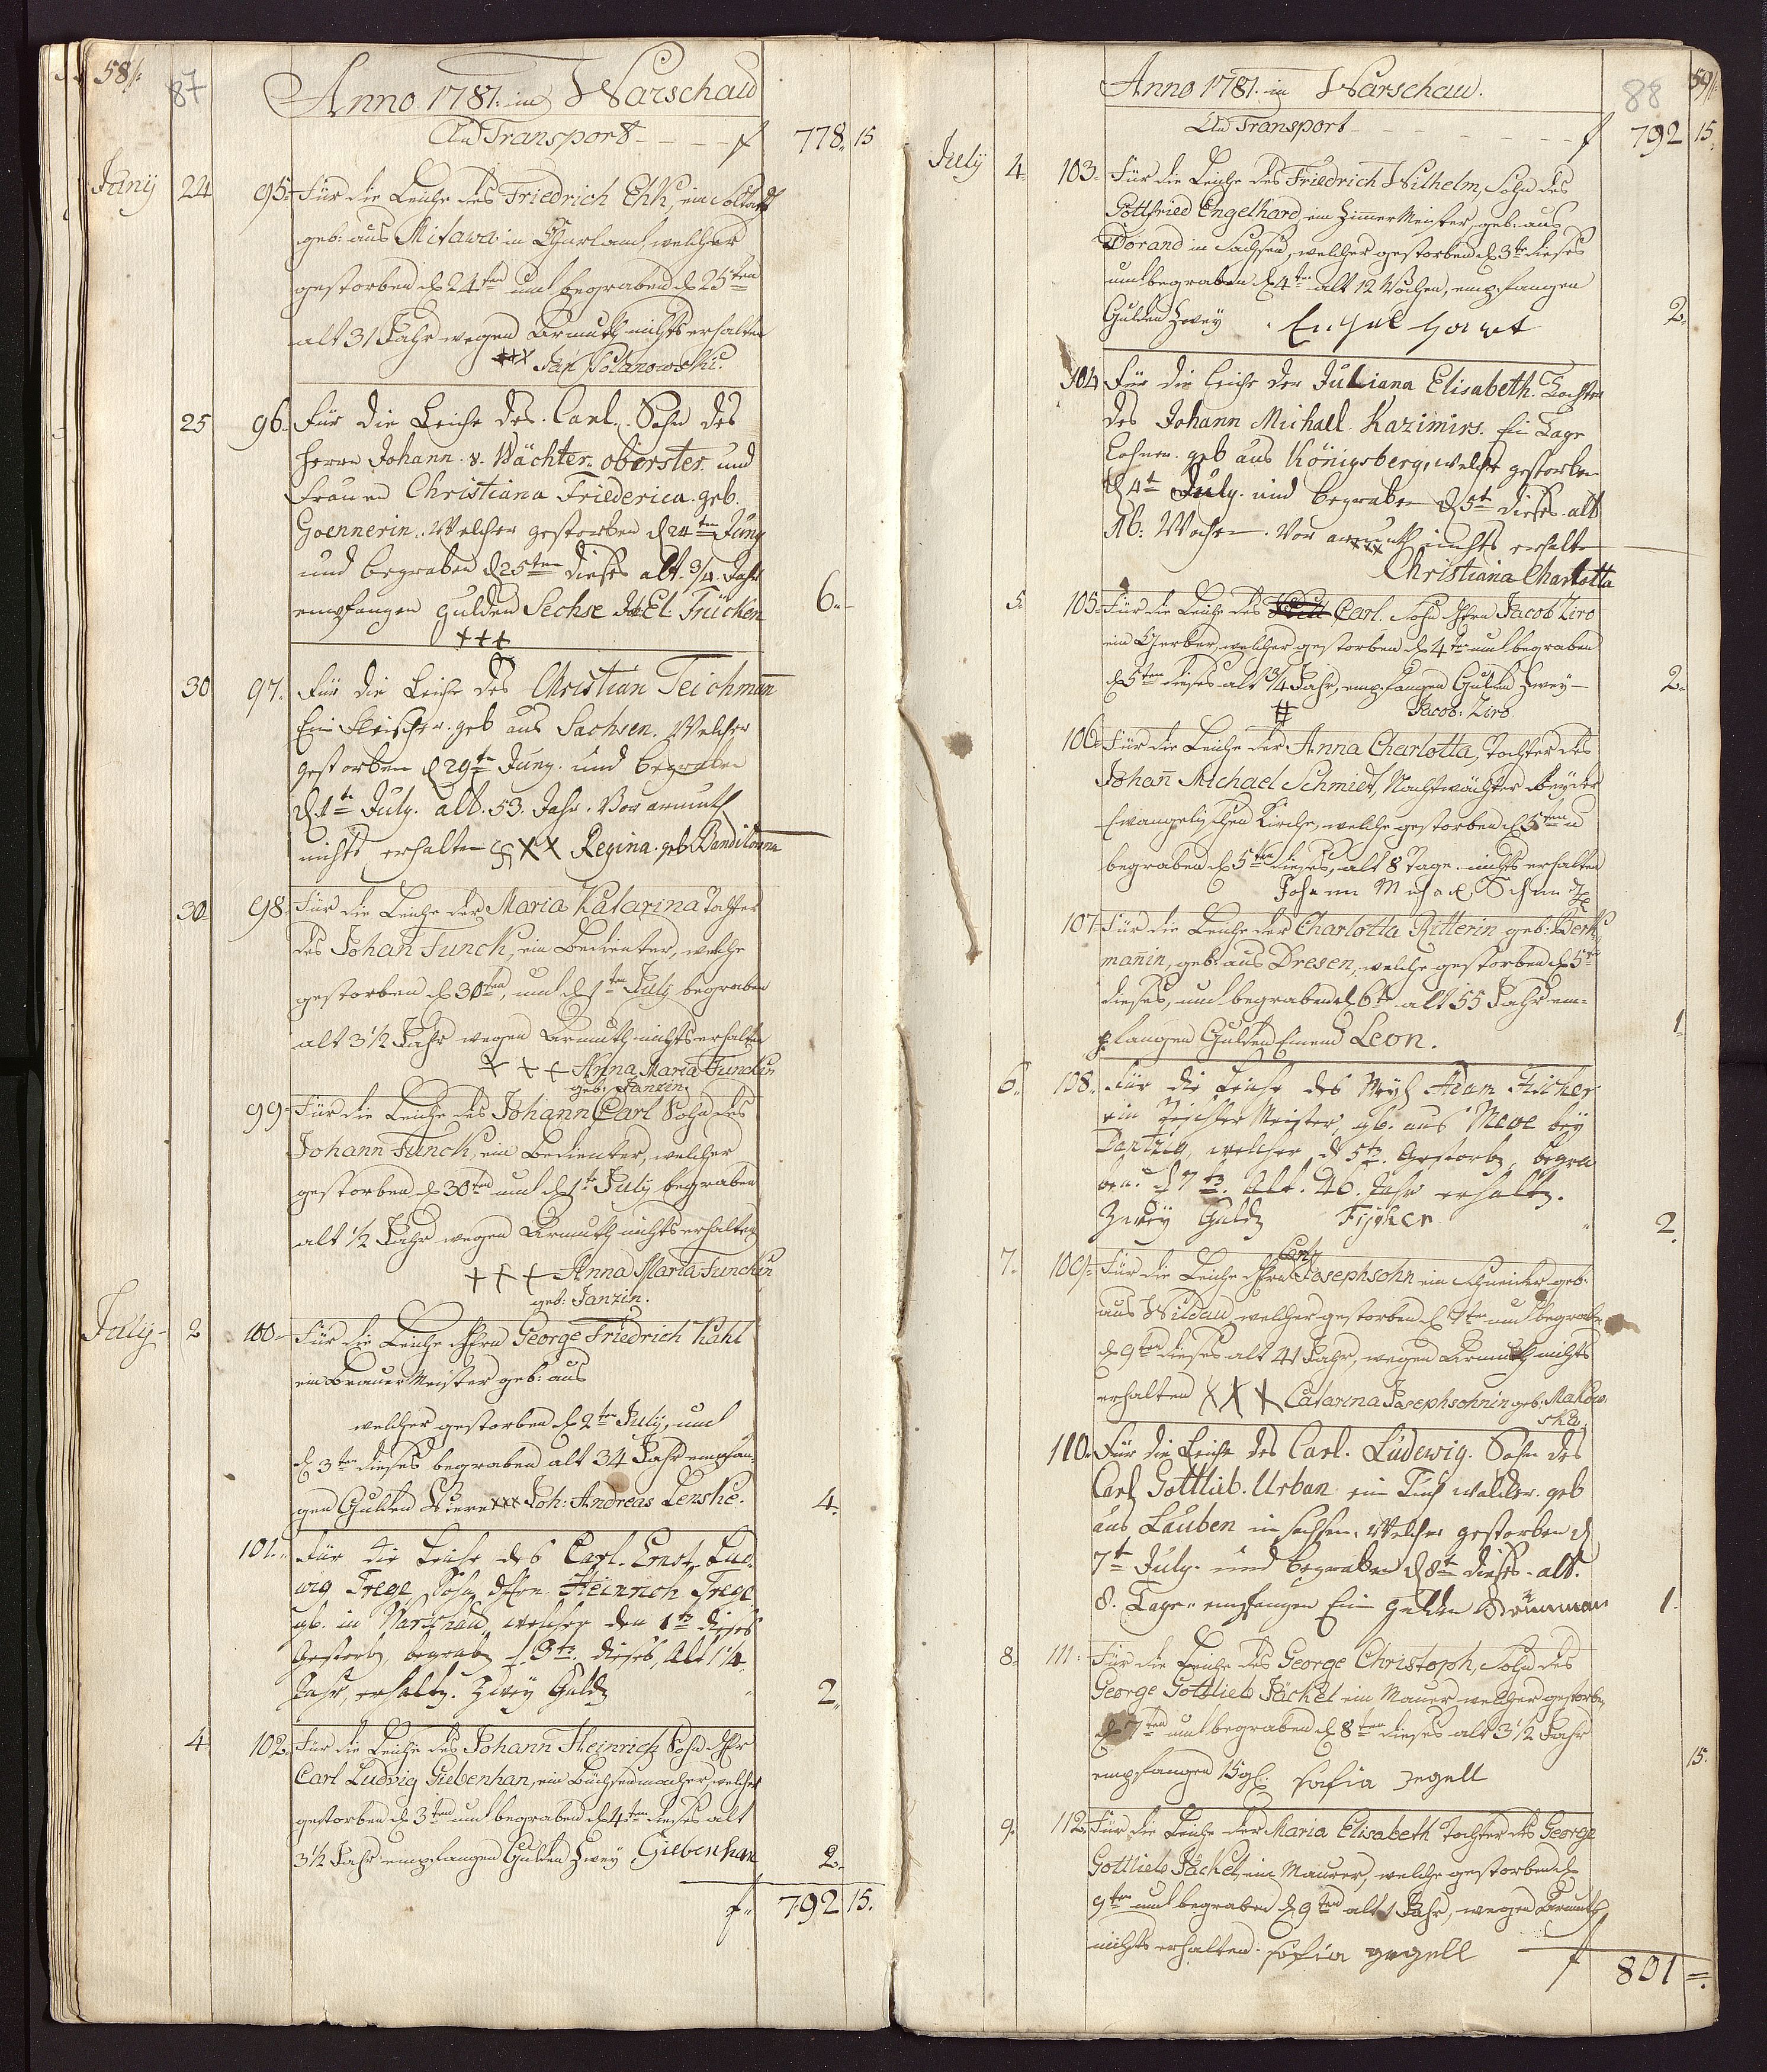 58/.
87
Anno 1781. in Warschau
An Transport - - - - f 778. 15
Junij 24 95. Für die Leiche des Friedrich Ehk, ein Soltath
geb: aus Mitawa in Churland, welcher
gestorben d 24ten und begraben d 25ten
alt 31 Jahr wegen Armuth nichts erhalten
+++ Jan Polanowski.
25 96. Für die Leiche des Carl. Sohn des
Herrn Johann. v. Wächter. oberster. und
Frauen Christiana Friederica. geb.
Goennerin. Welcher gestorben d 24ten Juny
und begraben d 25ten dieses alt. 3/4. Jahr
empfangen gulden Sechse Trücken 6.-
+++
30 97. Für die Leiche des Christian Teichmann
Ein Fleischer. geb aus Sachsen. Welcher
gestorben d 29tn Juny. und begraben
d. 1tn July. alt. 53. Jahr. Vor armuth
nichts erhalten XX Regina. geb.
30. 98. Für die Leiche der Maria Katarina Tochter
des Johan Funck, ein Bedienter, welche
gestorben d 30ten, und d 1ten July begraben
alt 3 1/2 Jahr wegen Armuth nichts erhalten
+ + + Anna Maria Funckin
geb: Janzin.
99. Für die Leiche des Johann Carl Sohn des
Johann Funck, ein Bedienter, welcher
gestorben d 30ten und d 1te July begraben
alt 1/2 Jahr wegen Armuth nichts erhalten
+ + + Anna Maria Funckin
geb: Janzin.
July 2 100 Für die Leiche George Friedrich Kahl
ein Brauer Meister geb: aus
welcher gestorben d 2ten July, und
d 3ten dieses begraben alt 34 Jahr empfan-
gen Gulden Viere xxx Joh: Andreas Lenske. 4.
101. Für die Leiche des Carl. Ernst. Lud-
wig Frege Sohn Heinrich Frege
gb. in Warschau, welcher den 1tn dieses
gestorb, begrab d. 3tn. dieses, Alt 1 1/4
Jahr, erhaltn. Zwey Guld 2.
4 102. Für die Leiche des Johann Heinrich Sohn
Carl Ludvig Giebenhan, ein Büchsenmacher, welcher
gestorben d 3ten und begraben d 4ten dieses alt
3 1/2 Jahr empfangen Gulden Zwey Giebenhan 2.
f. 792 15.
59/.
88
Anno 1781. in Warschau.
An Transport - - - - f 792 15.
July 4. 103. Für die Leiche des Friedrich Wilhelm, Sohn des
Gottfried Engelhard, ein Zimmer Meister, geb: aus
Dorand in Sachsen, welcher gestorben d 3te dieses
und begraben d 4te alt 12 Wochen, empfangen
Gulden Zwey. 2.
104 Für die Leiche der Juliana Elisabeth. Tochter
des Johann Michael. Kazimirs. Ein Tage
Lohner. geb aus Königsberg, welche gestorben
d 4tn July. und begraben d 5t dieses. alt
16. Wochen. Vor armuth nichts erhalten
xxx
Christiana Charlotta
5. 105. Für die Leiche des Carl. Sohn Jacob Ziro
ein Gerber, welcher gestorben d 4te und begraben
d 5ten dieses alt 3/4 Jahr, empfangen Gulden Zwey 2.
# Jacob: Ziro.
106. Für die Leiche der Anna Charlotta, Tochter des
Johan Michael Schmidt, Nachtwächter bey der
Evangelischen Kirche, welche gestorben d 5ten u
begraben d 5ten dieses, alt 8 Tage nichts erhalten
107. Für die Leiche der Charlotta Ritterin geb: Berk-
manin, geb: aus Dresen, welche gestorben d 5te
dieses, und begraben d 6te alt 55 Jahr em-
pfangen Gulden Einen Leon. 1.
6. 108. Für die Leiche des Adam Fischer
ein Tischler Meister, gb: aus Meve bey
Dantzig, welcher d 5tn. Gestorb, begra
ben. d 7tn. Alt. 46. Jahr erhaltn.
Zwey Guld Fijsher 2.
7. 109. Für die Leiche Josephsohn ein Schneider geb.
aus Wildau, welcher gestorben d 7te und begraben
d 9ten dieses alt 41 Jahr, wegen Armuth nichts
erhalten XXX Catarina Josephsohnin geb: Makow-
ska.
110. Für die Leiche des Carl. Ludewig. Sohn des
Carl Gottlieb. Urban ein Tuch walcker. geb
aus Lauben in Sachsen. Welcher gestorben d
7t July. und begraben d 8t dieses. alt.
8. Tage. empfangen Ein Gulden 1.
8. 111. Für die Leiche des George Christoph, Sohn des
George Gottlieb Jäckel ein Maurer welcher gestorben,
d 7ten und begraben d 8ten dieses alt 3 1/2 Jahr
empfangen 15 gl. Sofia Jegell 15.
9. 112. Für die Leiche der Maria Elisabeth Tochter des George
Gottlieb Jäckel, ein Maurer, welche gestorben d
9ten und begraben d 9ten alt 1 Jahr, wegen Armuth
nichts erhalten. Sofia gegell
f 801